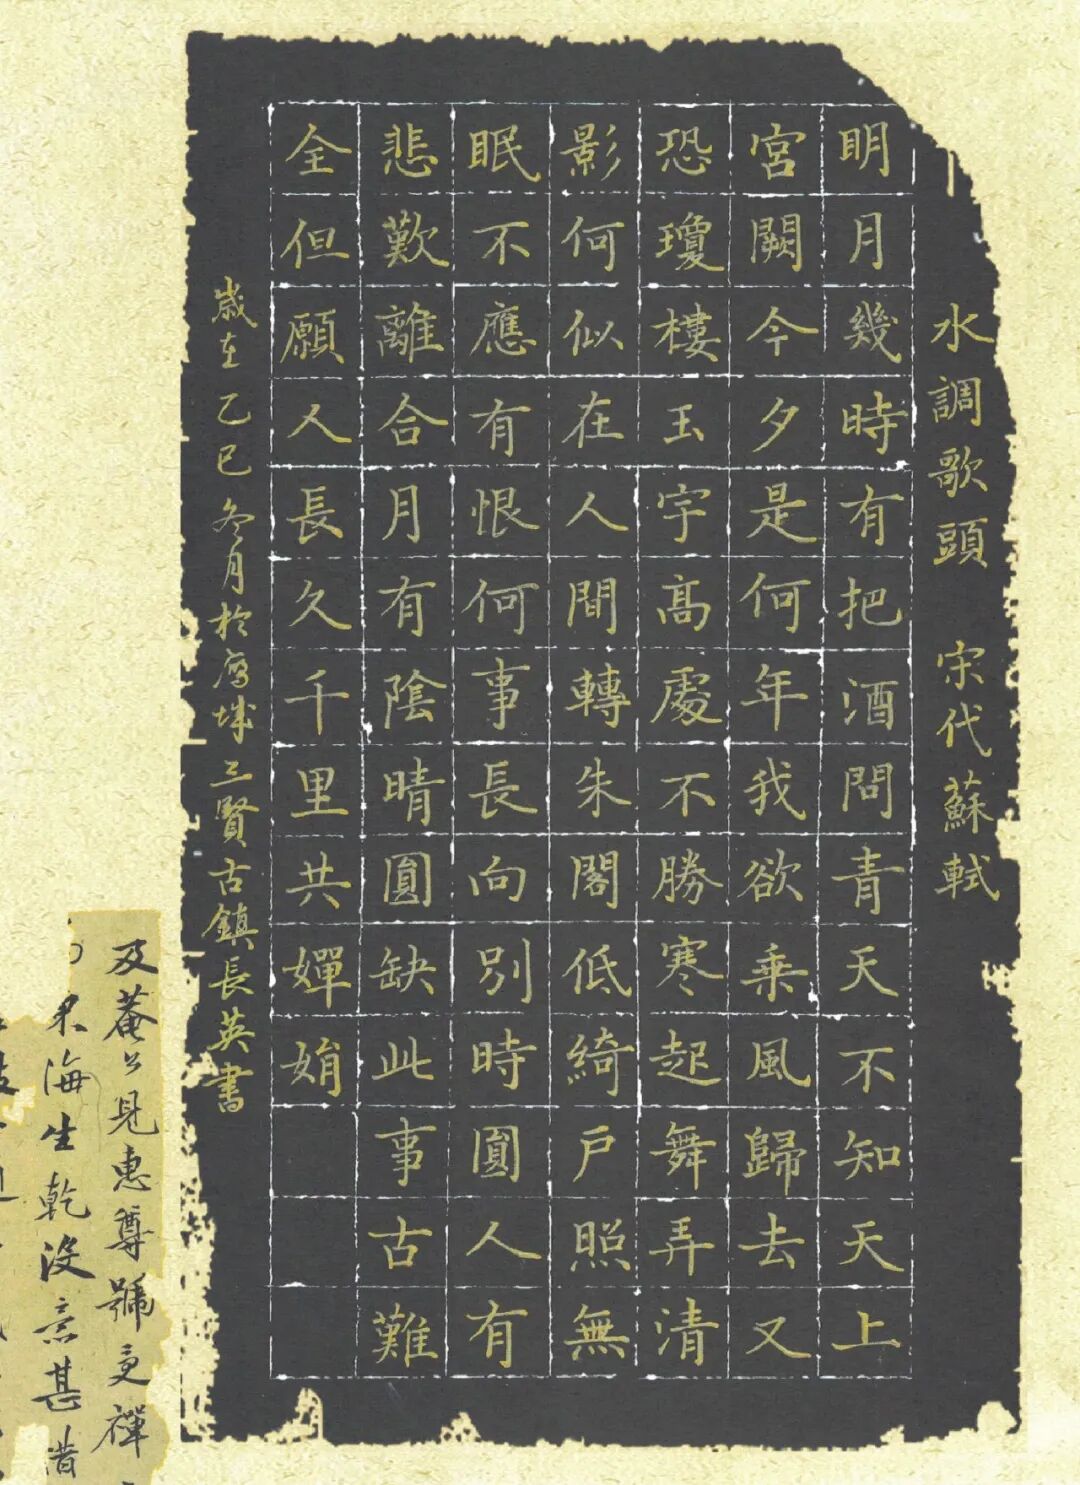 水調歌頭 宋代蘇軾
明月幾時有把酒問青天不知天上
宮闕今夕是何年我欲乘風歸去又
恐瓊樓玉宇髙處不勝寒起舞弄清
影何似在人間轉朱閣低綺戶照無
眠不應有恨何事長向別時圓人有
悲歎離合月有陰晴圓缺此事古難
全但願人長久千里共嬋娟
歲在乙巳冬月於城三賢古鎮長英書
及菴公見惠尊號更禪
海生乾沒意甚